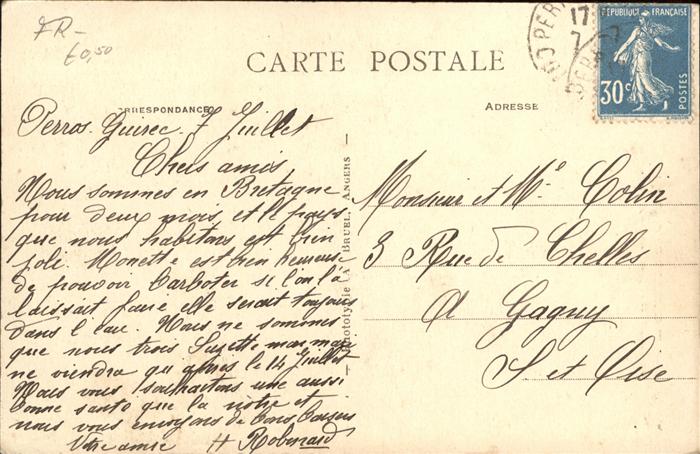 FR-
€0,50
CARTE POSTALE
CORRESPONDANCE
ADRESSE
RÉPUBLIQUE FRANÇAISE
30c
POSTES
17
7
Perros. Guirec. 7 Juillet
Chers amis
Nous sommes en Bretagne
pour deux mois, et le pays
que nous habitons est bien
joli. Monette est bien heureuse
de pouvoir barboter si l'on l'à
laissait faire elle serait toujours
dans l'eau. Nous ne sommes
que nous trois Suzette mon mari
ne viendra qu'après le 14 Juillet
Nous vous souhaitons une aussi
bonne santé que la notre et
nous vous envoyons de bons baisers
Votre amie H Robinard
Phototypie A. BRUEL, ANGERS
Monsieur et Me Colin
3 Rue de Chelles
A Gagny
S et Oise